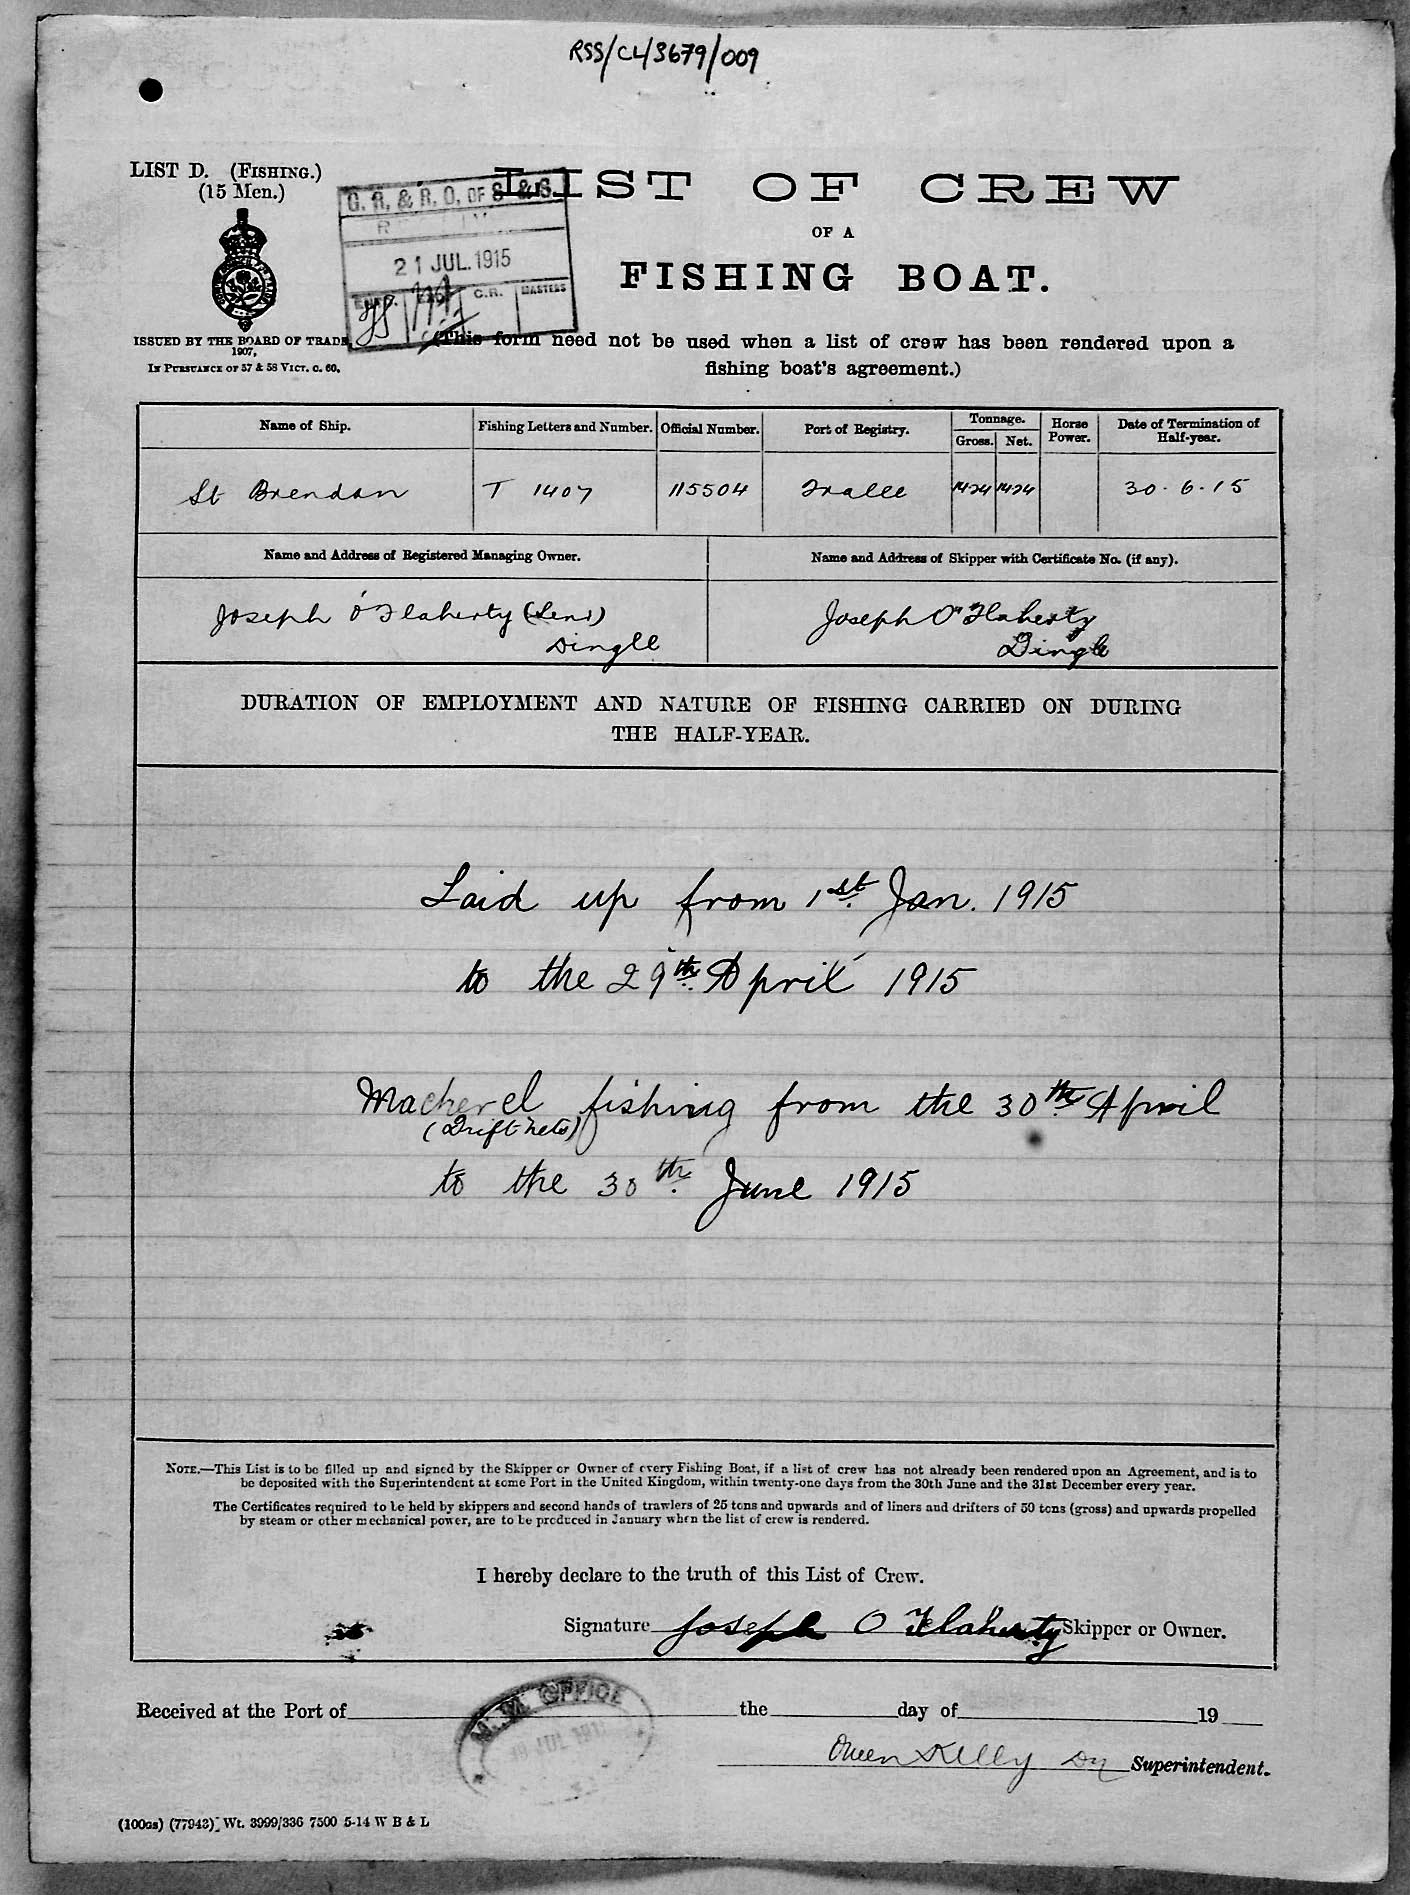 RSS/CL/3679/009
LIST D. (FISHING.)
(15 Men.)
G. R. & R. O. OF S. & S.
21 JUL. 1915
C.R. MASTERS
ISSUED BY THE BOARD OF TRADE,
1907,
IN PURSUANCE OF 57 & 58 VICT. C. 60.
LIST OF CREW
OF A
FISHING BOAT.
(This form need not be used when a list of crew has been rendered upon a
fishing boat's agreement.)
Name of Ship. Fishing Letters and Number. Official Number. Port of Registry. Tonnage. Gross. Net. Horse Power. Date of Termination of Half-year.
St Brendan T 1407 115504 Tralee 14.24 14.24 30.6.15
Name and Address of Registered Managing Owner. Name and Address of Skipper with Certificate No. (if any).
Joseph O'Flaherty (Senr) Joseph O'Flaherty
Dingle Dingle
DURATION OF EMPLOYMENT AND NATURE OF FISHING CARRIED ON DURING
THE HALF-YEAR.
Laid up from 1st. Jan. 1915
to the 29th. April 1915
Mackerel fishing from the 30th. April
(Drift nets)
to the 30th. June 1915
NOTE.—This List is to be filled up and signed by the Skipper or Owner of every Fishing Boat, if a list of crew has not already been rendered upon an Agreement, and is to
be deposited with the Superintendent at some Port in the United Kingdom, within twenty-one days from the 30th June and the 31st December every year.
The Certificates required to be held by skippers and second hands of trawlers of 25 tons and upwards and of liners and drifters of 50 tons (gross) and upwards propelled
by steam or other mechanical power, are to be produced in January when the list of crew is rendered.
I hereby declare to the truth of this List of Crew.
Signature Joseph O Flaherty Skipper or Owner.
Received at the Port of the day of 19
M. M. OFFICE
JUL 191
Owen Kelly Dy Superintendent.
(100gs) (77943) Wt. 3999/336 7500 5-14 W B & L